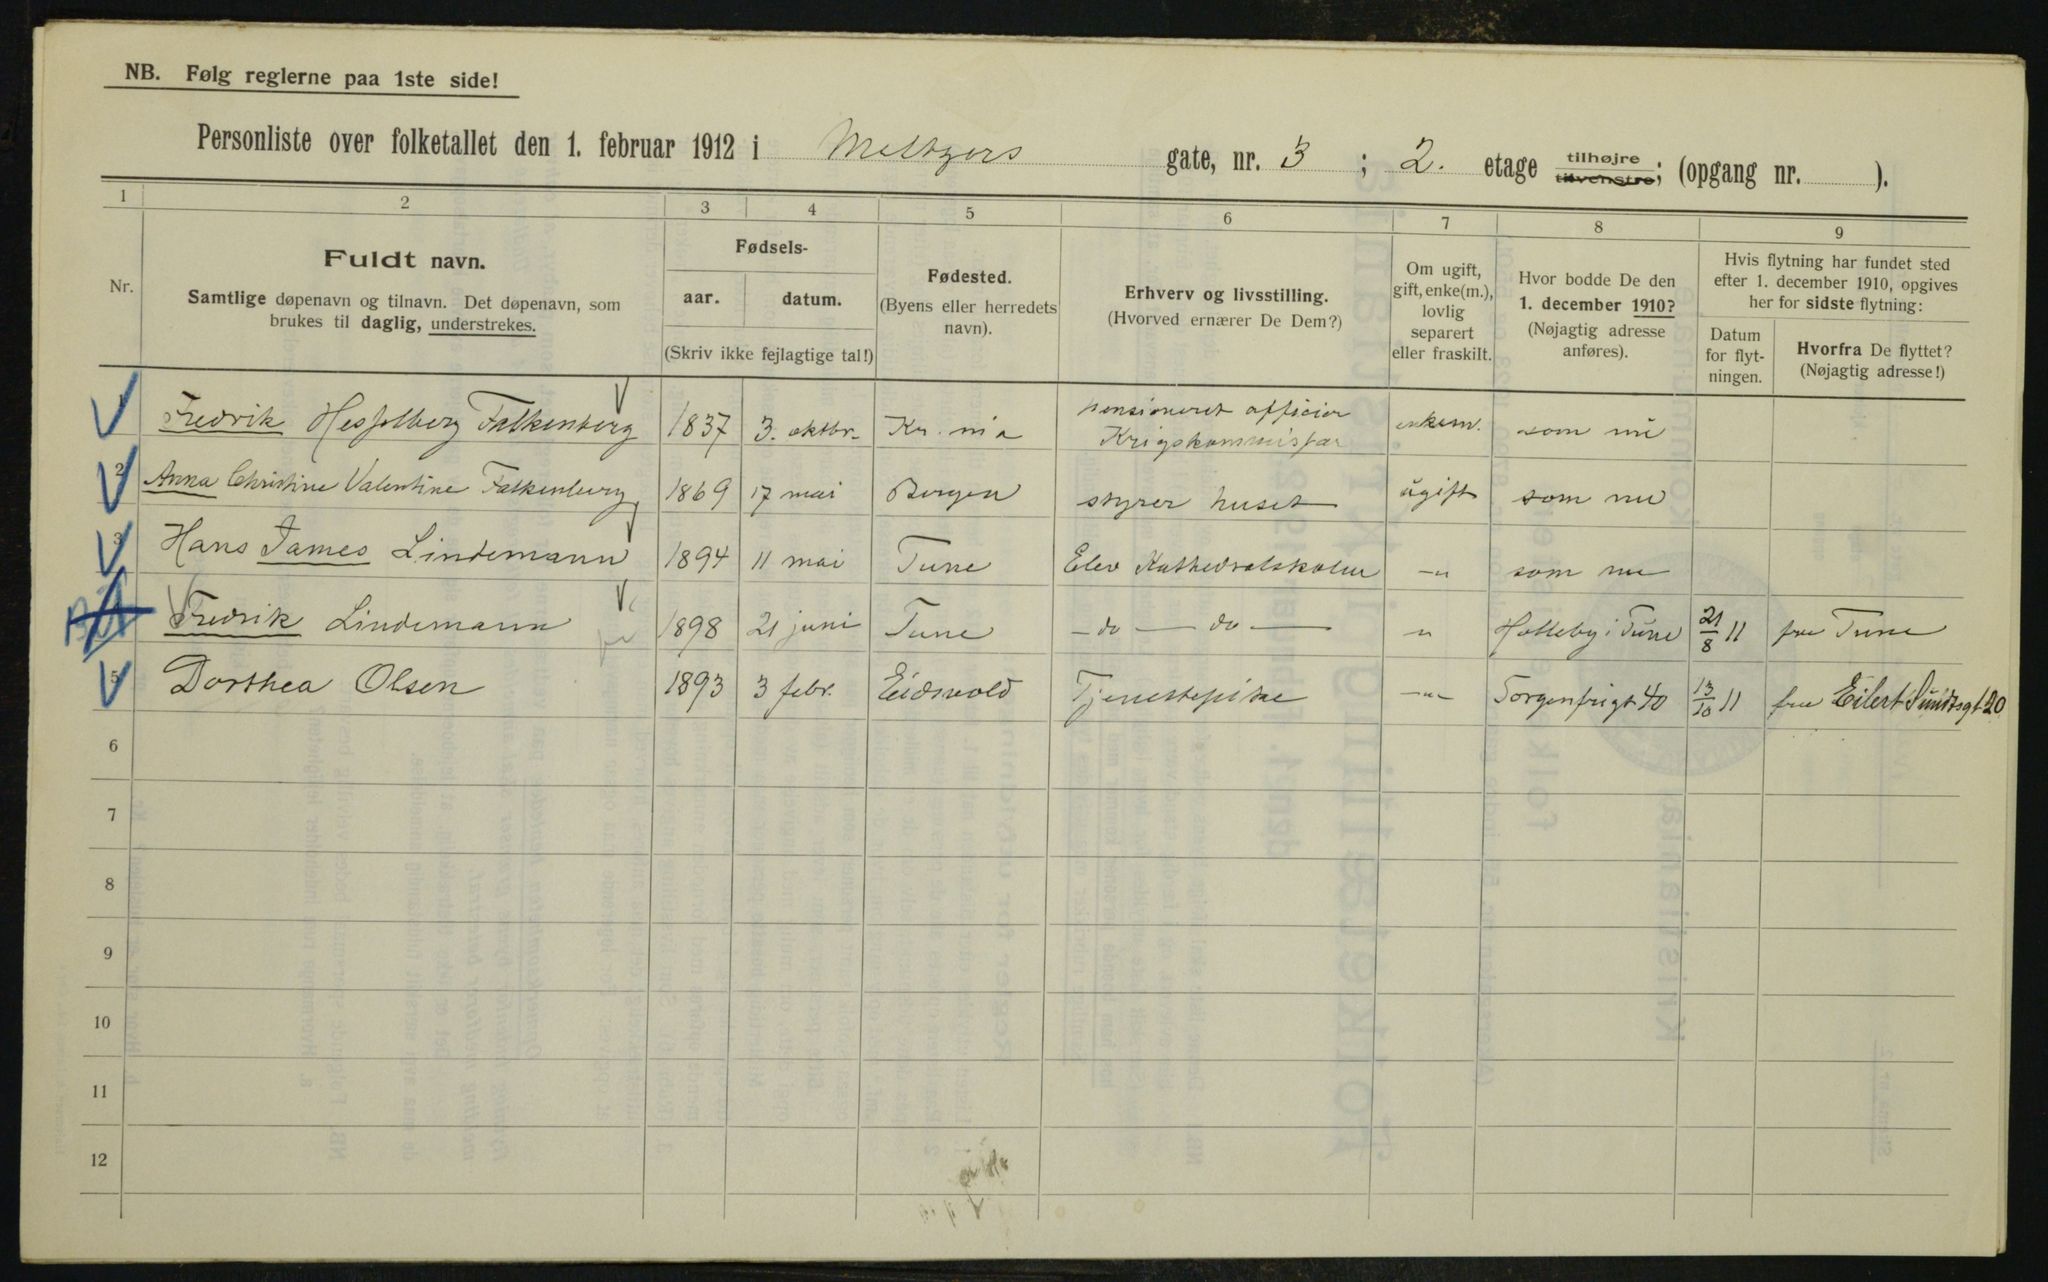 NB. Følg reglerne paa 1ste side!
Personliste over folketallet den 1. februar 1912 i Meltzers gate, nr. 3 ; 2. etage tilhøjre tilvenstre; (opgang nr. ).
1 2 3 4 5 6 7 8 9
Nr.
Fuldt navn.
Samtlige døpenavn og tilnavn. Det døpenavn, som
brukes til daglig, understrekes.
Fødsels-
aar. datum.
(Skriv ikke fejlagtige tal!)
Fødested.
(Byens eller herredets
navn).
Erhverv og livsstilling.
(Hvorved ernærer De Dem?)
Om ugift,
gift, enke(m.),
lovlig
separert
eller fraskilt.
Hvor bodde De den
1. december 1910?
(Nøjagtig adresse
anføres).
Hvis flytning har fundet sted
efter 1. december 1910, opgives
her for sidste flytning:
Datum
for flyt-
ningen.
Hvorfra De flyttet?
(Nøjagtig adresse!)
1 Fredrik Hesselberg Falkenberg 1837 3. oktbr. Kr.nia pensioneret officier
Krigskommissær enkem. som nu
2 Anna Christine Valentine Falkenberg 1869 17 mai Bergen styrer huset ugift som nu
3 Hans James Lindemann 1894 11 mai Tune Elev Kathedralskolen -"- som nu
Fredrik Lindemann 1898 21 juni Tune - do - do - " Holleby i Tune 21/8 11 fra Tune
5 Dorthea Olsen 1893 3 febr. Eidsvold Tjenestepike -"- Sorgenfrigt 40 13/10 11 fra Eilert Sundtsgt 20
6
7
8
9
10
11
12